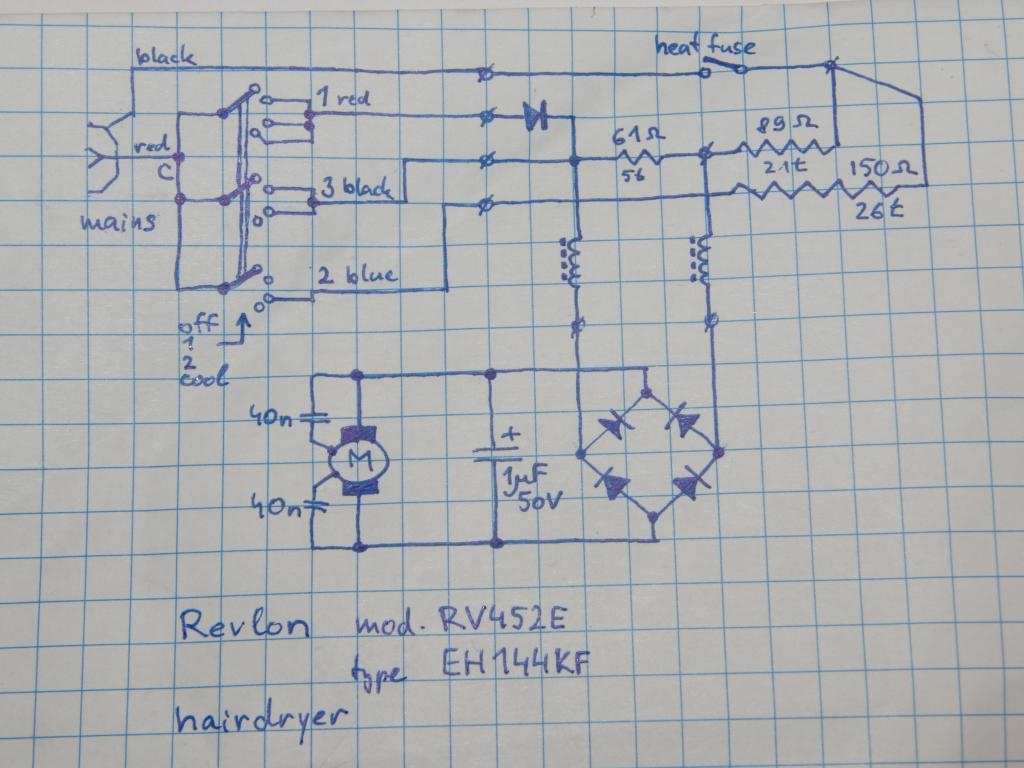 black
heat fuse
1 red
red
C
mains
61Ω
56
89Ω
21t
150Ω
26t
3 black
2 blue
off
1
2
cool
40n
M
40n
+
1µF
50V
Revlon mod. RV452E
type EH144KF
hairdryer